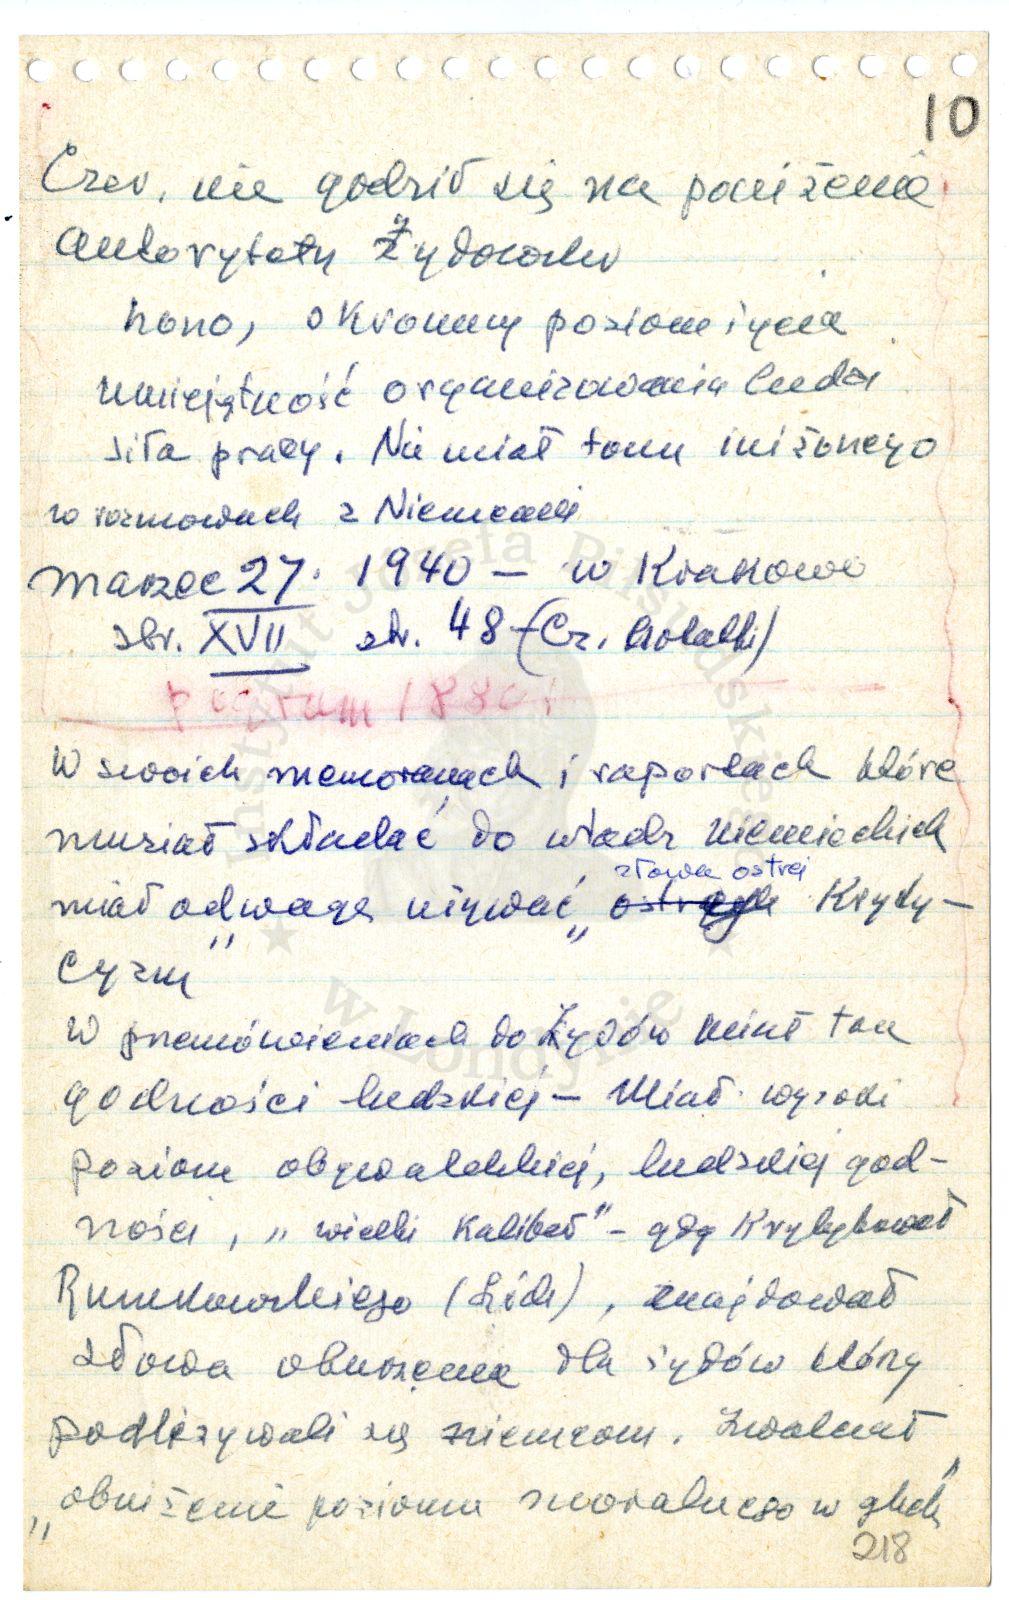 10
Czer. nie godził się na poniżenie
Autorytetu Żydowsko
hono, skromny poziom życia
umiejętność organizowania ludzi
siła pracy. Nie miał tonu uniżonego
w rozmowach z Niemcami
marzec 27. 1940 – w Krakowie
str. XVII str. 48 – (Cz.
1880
W swoich memoriałach i raportach które
musiał składać do władz niemieckich
miał odwagę używać „słowa ostrej Kryty-
cyzm"
W przemówieniach do Żydów miał ton
godności ludzkiej – Miał wysoki
poziom obywatelskiej, ludzkiej god-
ności, „wielki Kaliber" – gdy Krytykował
Rumkowskiego (Łódź), znajdował
słowa oburzenia dla żydów którzy
podlizywali się niemcom. Zwalczał
„obniżenie poziomu moralnego w
218
Instytut Józefa Piłsudskiego
w Londynie